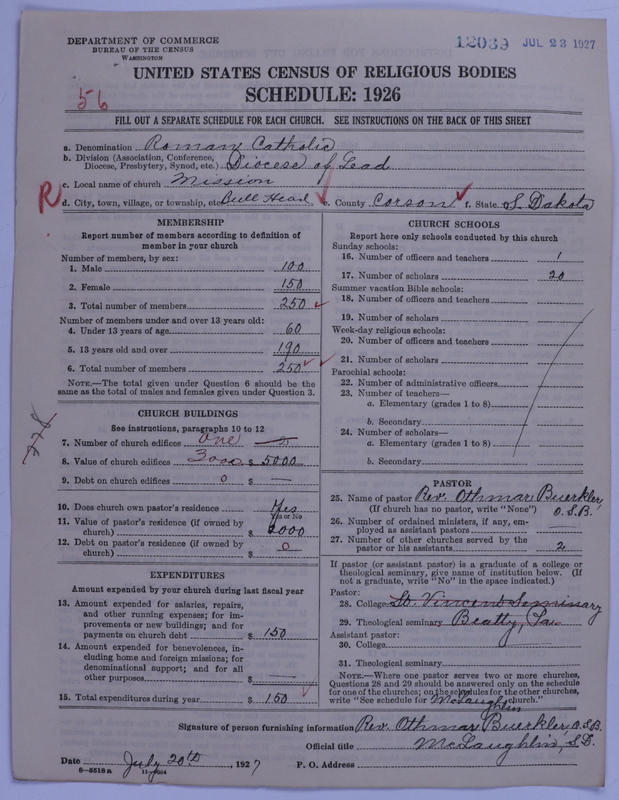 DEPARTMENT OF COMMERCE
BUREAU OF THE CENSUS
WASHINGTON
12039 JUL 23 1927
UNITED STATES CENSUS OF RELIGIOUS BODIES
SCHEDULE: 1926
56
FILL OUT A SEPARATE SCHEDULE FOR EACH CHURCH. SEE INSTRUCTIONS ON THE BACK OF THIS SHEET
a. Denomination Roman Catholic
b. Division (Association, Conference, Diocese, Presbytery, Synod, etc.) Diocese of Lead
c. Local name of church Mission
R d. City, town, village, or township, etc. Bull Head e. County Corson f. State S. Dakota
MEMBERSHIP
Report number of members according to definition of
member in your church
Number of members, by sex:
1. Male 100
2. Female 150
3. Total number of members 250
Number of members under and over 13 years old:
4. Under 13 years of age 60
5. 13 years old and over 190
6. Total number of members 250
NOTE.—The total given under Question 6 should be the
same as the total of males and females given under Question 3.
CHURCH BUILDINGS
See instructions, paragraphs 10 to 12
7. Number of church edifices one
8. Value of church edifices 3000 $ 5000
9. Debt on church edifices 0 $ —
10. Does church own pastor's residence Yes
Yes or No
11. Value of pastor's residence (if owned by
church) $ 2000
12. Debt on pastor's residence (if owned by
church) $ 0
EXPENDITURES
Amount expended by your church during last fiscal year
13. Amount expended for salaries, repairs,
and other running expenses; for im-
provements or new buildings; and for
payments on church debt $ 150
14. Amount expended for benevolences, in-
cluding home and foreign missions; for
denominational support; and for all
other purposes $ —
15. Total expenditures during year $ 150
CHURCH SCHOOLS
Report here only schools conducted by this church
Sunday schools:
16. Number of officers and teachers 1
17. Number of scholars 20
Summer vacation Bible schools:
18. Number of officers and teachers
19. Number of scholars
Week-day religious schools:
20. Number of officers and teachers
21. Number of scholars
Parochial schools:
22. Number of administrative officers
23. Number of teachers—
a. Elementary (grades 1 to 8)
b. Secondary
24. Number of scholars—
a. Elementary (grades 1 to 8)
b. Secondary
PASTOR
25. Name of pastor Rev. Othmar Buerkler,
(If church has no pastor, write "None") O.S.B.
26. Number of ordained ministers, if any, em-
ployed as assistant pastors —
27. Number of other churches served by the
pastor or his assistants 2
If pastor (or assistant pastor) is a graduate of a college or
theological seminary, give name of institution below. (If
not a graduate, write "No" in the space indicated.)
Pastor:
28. College St. Vincent Seminary
29. Theological seminary Beatty, Pa.
Assistant pastor:
30. College
31. Theological seminary
NOTE.—Where one pastor serves two or more churches,
Questions 28 and 29 should be answered only on the schedule
for one of the churches; on the schedules for the other churches,
write "See schedule for McLaughlin church."
Signature of person furnishing information Rev. Othmar Buerkler, O.S.B.
Official title McLaughlin, S.D.
Date July 20th, 1927 P. O. Address
8—5518a